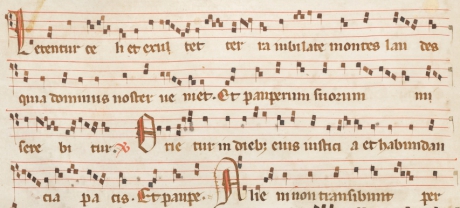 Letentur ce li et exul tet ter ra iubilate montes lau des
quia dominus noster ue niet. Et pauperum suorum mi
sere bi tur. Orie tur in dieb; eius iustici a et habundan
cia pa cis. Et paupe. A lie ni non transibunt per